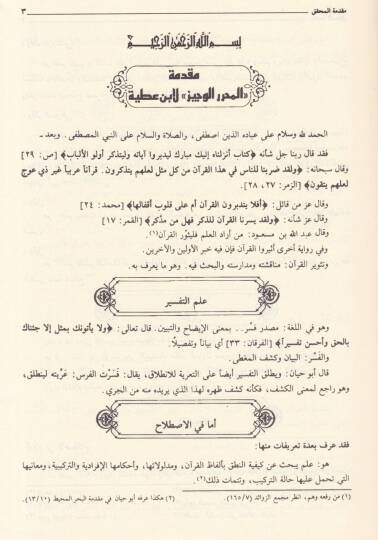 مقدمة المحقق ٣
بسم الله الرحمن الرحيم
مقدمة
«المحرر الوجيز» لابن عطية
الحمد لله وسلام على عباده الذين اصطفى، والصلاة والسلام على النبي المصطفى. وبعد-
فقد قال ربنا جل شأنه ﴿كتاب أنزلناه إليك مبارك ليدبروا آياته وليتذكر أولو الألباب﴾ [ص: ٢٩]
وقال سبحانه: ﴿ولقد ضربنا للناس في هذا القرآن من كل مثل لعلهم يتذكرون. قرآناً عربياً غير ذي عوج
لعلهم يتقون﴾ [الزمر: ٢٧، ٢٨].
وقال عز من قائل: ﴿أفلا يتدبرون القرآن أم على قلوب أقفالها﴾ [محمد: ٢٤]
وقال عز شأنه: ﴿ولقد يسرنا القرآن للذكر فهل من مدّكر﴾ [القمر: ١٧]
وقال عبد الله بن مسعود: من أراد العلم فليثوّر القرآن(١).
وفي رواية أخرى أثيروا القرآن فإن فيه خبر الأولين والآخرين.
وتثوير القرآن: مناقشته ومدارسته والبحث فيه. وهو ما يعرف به.
علم التفسير
وهو في اللغة: مصدر فسّر.. بمعنى الإيضاح والتبيين. قال تعالى: ﴿ولا يأتونك بمثل إلا جئناك
بالحق وأحسن تفسيراً﴾ [الفرقان: ٣٣] أي بياناً وتفصيلاً.
والفَسْر: البيان وكشف المغطى.
قال أبو حيان: ويطلق التفسير أيضاً على التعرية للانطلاق، يقال: فَسَرْت الفرس: عَرَّيته لينطلق،
وهو راجع لمعنى الكشف، فكأنه كشف ظهره لهذا الذي يريده منه من الجري.
أما في الاصطلاح
فقد عرف بعدة تعريفات منها:
هو: علم يبحث عن كيفية النطق بألفاظ القرآن، ومدلولاتها، وأحكامها الإفرادية والتركيبية، ومعانيها
التي تحمل عليها حالة التركيب، وتتمات ذلك(٢).
(١) من رفعه وهم، انظر مجمع الزوائد (١٦٥/٧). (٢) هكذا عرفه أبو حيان في مقدمة البحر المحيط (١٣/١٠).